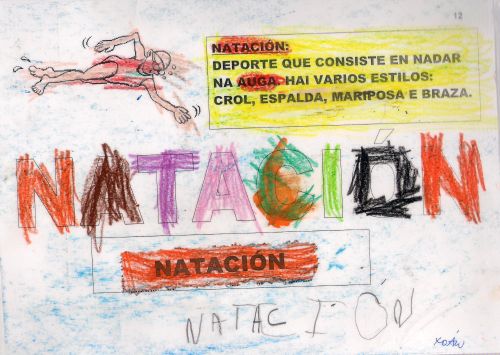 12
NATACIÓN:
DEPORTE QUE CONSISTE EN NADAR
NA AUGA. HAI VARIOS ESTILOS:
CROL, ESPALDA, MARIPOSA E BRAZA.
NATACIÓN
NATACIÓN
NATACIÓN
Xoán